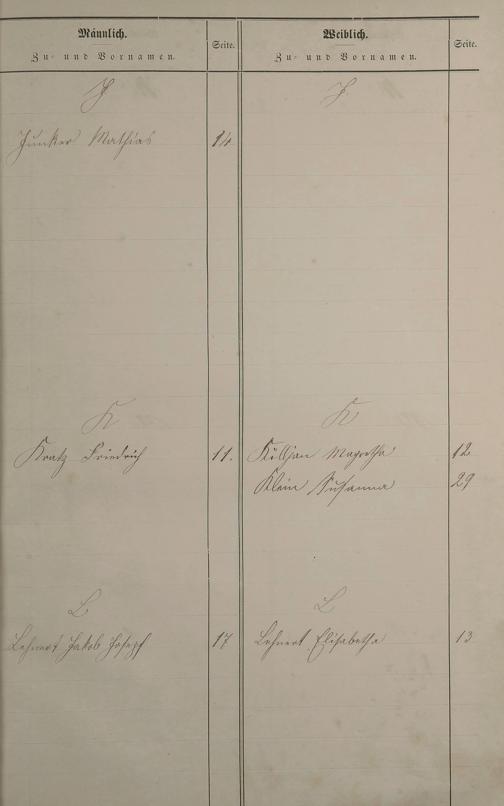 Männlich.
Zu- und Vornamen.
Seite.
Weiblich.
Zu- und Vornamen.
Seite.
J
J
Junker Mathias 14
K
K
Kratz Friedrich 11.
Killjan Magretha 12
Klein Susanna 29
L
L
Lehnert Jakob Josepf 17
Lehnert Elisabetha 13